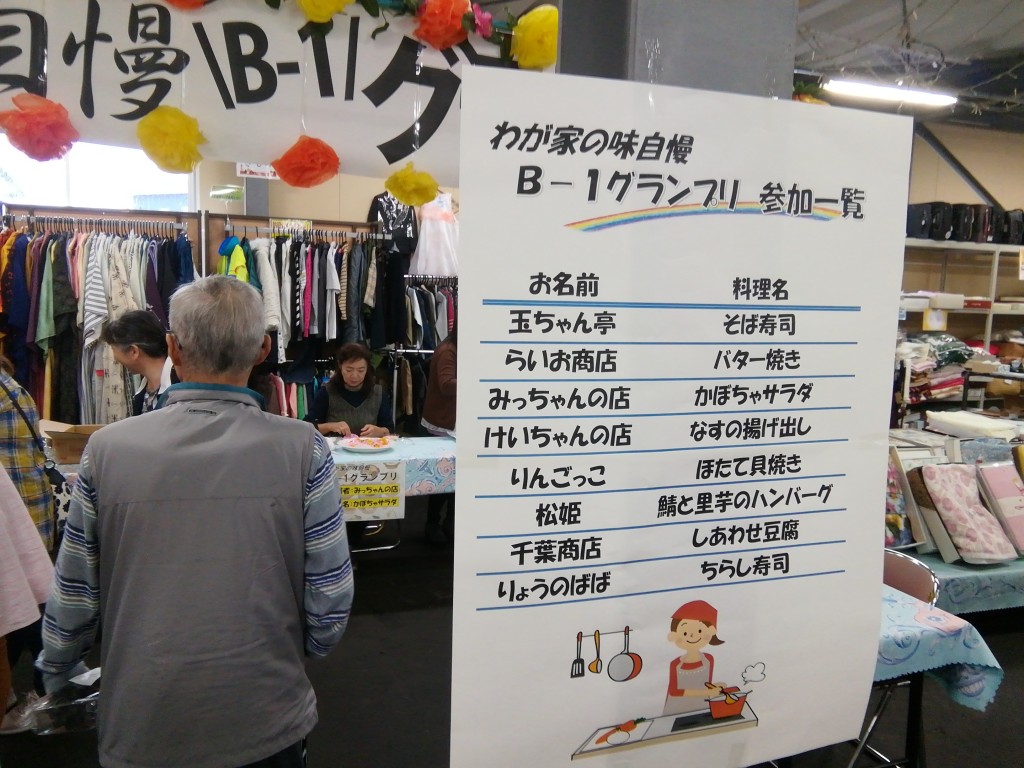 自慢\B-1/グ
わが家の味自慢
B-1グランプリ 参加一覧
お名前 料理名
玉ちゃん亭 そば寿司
らいお商店 バター焼き
みっちゃんの店 かぼちゃサラダ
けいちゃんの店 なすの揚げ出し
りんごっこ ほたて貝焼き
松姫 鯖と里芋のハンバーグ
千葉商店 しあわせ豆腐
りょうのばば ちらし寿司
-1グランプリ
者:みっちゃんの店
名:かぼちゃサラダ